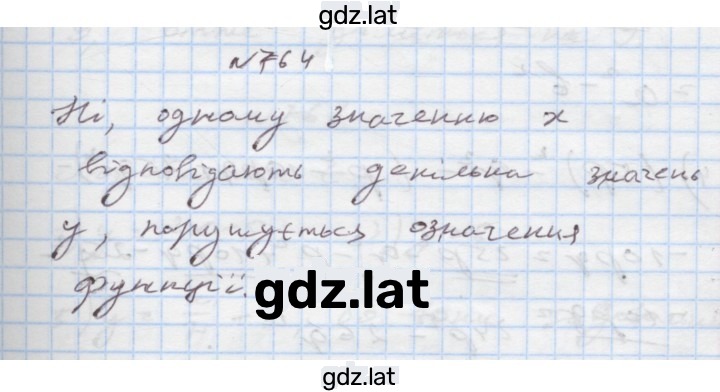 gdz.lat
№764
Ні, одному значенню х
відповідають декілька значень
у, порушується означення
функції.
gdz.lat
gdz.lat